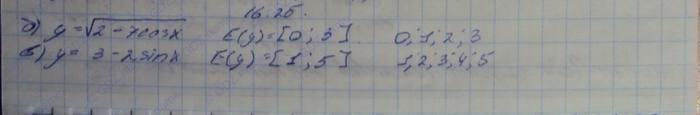 16.25.
а) y = √2 - 7cosx E(y)=[0; 3] 0; 1; 2; 3
б) y = 3 - 2sinx E(y)=[1; 5] 1; 2; 3; 4; 5